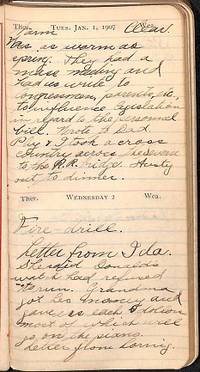 Ther. TUES. JAN. 1, 1907 Wea.
Warm Clear
Was as warm as
spring. They had a
mass meeting and
had us write to
congressmen, parents, etc.,
to influence legislation
in regard to the personnel
bill. Wrote to Dad.
I took a cross
country across the Severn
to the R.R. bridge. Hasty
out to dinner.
Ther. WEDNESDAY 2 Wea.
Fire-drill.
Letter from Ida.
She said
watch had refused
Grandma
got his money and
gave us each
most of which will
go on the piano.
Letter from Loring.